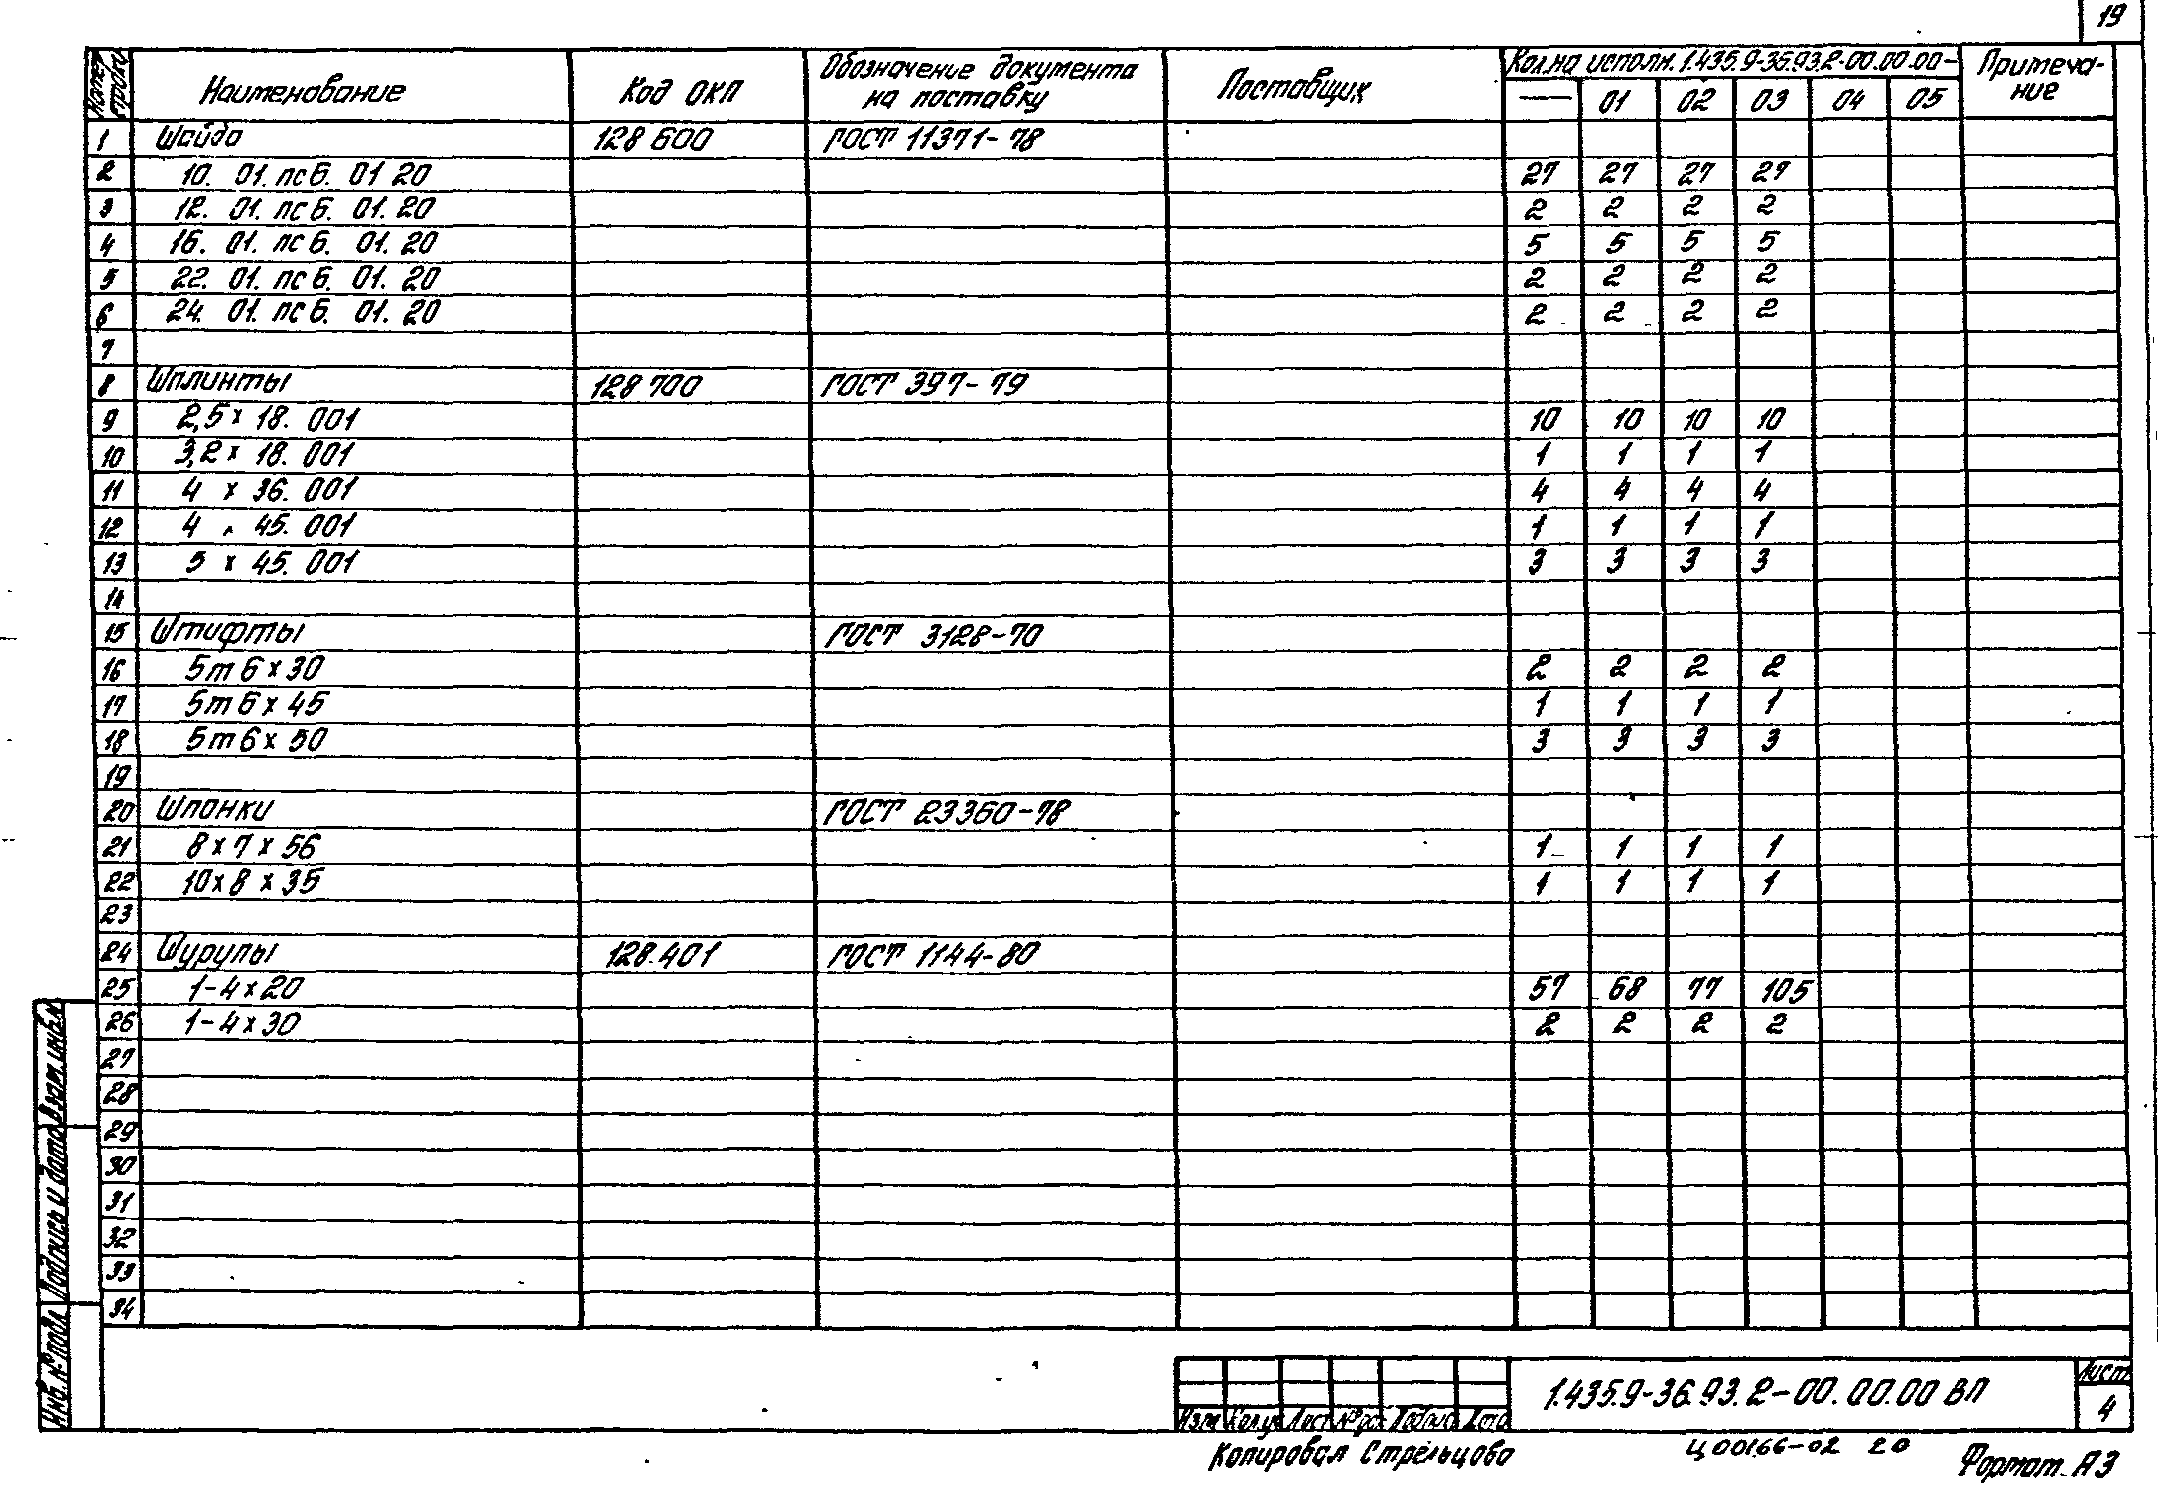 19
№ строки Наименование Код ОКП Обозначение документа на поставку Поставщик Кол.на исполн. 1.435.9-36.93.2-00.00.00- Примеча-ние
— 01 02 03 04 05
1 Шайба 128 600 ГОСТ 11371-78
2 10. 01. пс 6. 01 20 27 27 27 27
3 12. 01. пс 6. 01. 20 2 2 2 2
4 16. 01. пс 6. 01. 20 5 5 5 5
5 22. 01. пс 6. 01. 20 2 2 2 2
6 24. 01. пс 6. 01. 20 2 2 2 2
7
8 Шплинты 128 700 ГОСТ 397-79
9 2,5 х 18. 001 10 10 10 10
10 3,2 х 18. 001 1 1 1 1
11 4 х 36. 001 4 4 4 4
12 4 х 45. 001 1 1 1 1
13 5 х 45. 001 3 3 3 3
14
15 Штифты ГОСТ 3128-70
16 5m6 х 30 2 2 2 2
17 5m6 х 45 1 1 1 1
18 5m6 х 50 3 3 3 3
19
20 Шпонки ГОСТ 23360-78
21 8 х 7 х 56 1 1 1 1
22 10 х 8 х 35 1 1 1 1
23
24 Шурупы 128.401 ГОСТ 1144-80
25 1-4 х 20 57 68 77 105
26 1-4 х 30 2 2 2 2
27
28
29
30
31
32
33
34
Инв. № подл Подпись и дата Взам. инв. №
Изм Кол.уч Лист № док Подпись Дата
1.435.9-36.93.2-00.00.00 ВП
Лист
4
Копировал Стрельцова
Ц00166-02 20
Формат А3